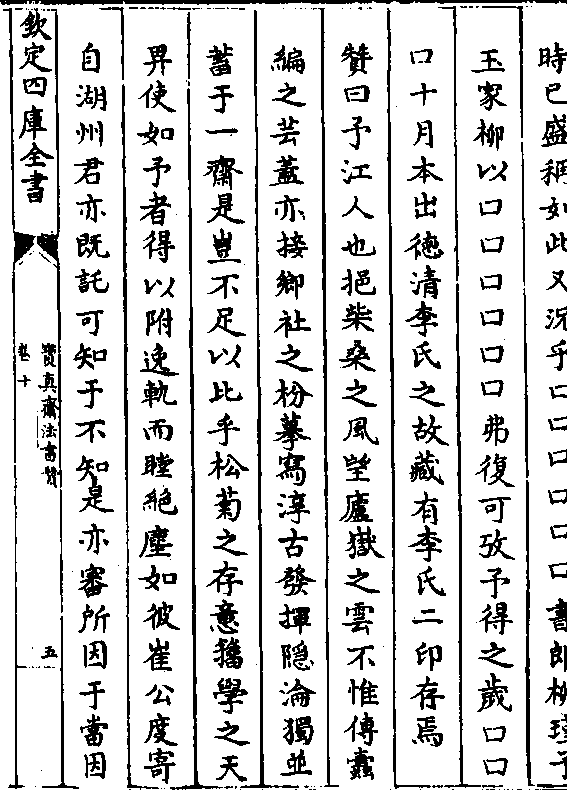 時已盛稱如此又況乎口口口口口書郎柳瑾子
玉家柳以口口口口口口弗復可攷予得之歲口口
口十月本出徳清李氏之故藏有李氏二印存焉
贊曰予江人也挹柴桑之風望廬嶽之雲不惟傳蠹
編之芸蓋亦接鄉社之枌摹寫淳古發揮隐淪獨並
蓄于一齋是豈不足以比乎松菊之存意籀學之天
畀使如予者得以附逸軌而瞠絶塵如彼崔公度寄
自湖州君亦既託可知于不知是亦審所因于當因
欽定四庫全書
寳真齋法書贊
卷十
五